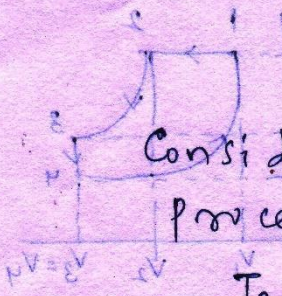 2 1
3
4
Consi
Proce
V4=V3 V2 V1